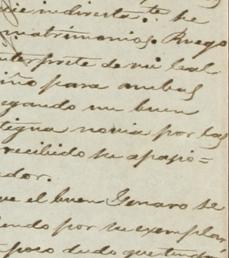 indirecta.te he
matrimonio; Ruego
interprete de mi leal
riño para ambos
egando un buen
digna novia por las
recibido su apasio=
dor.
que el buen Genaro se
endo por su exemplar,
poco dudo que